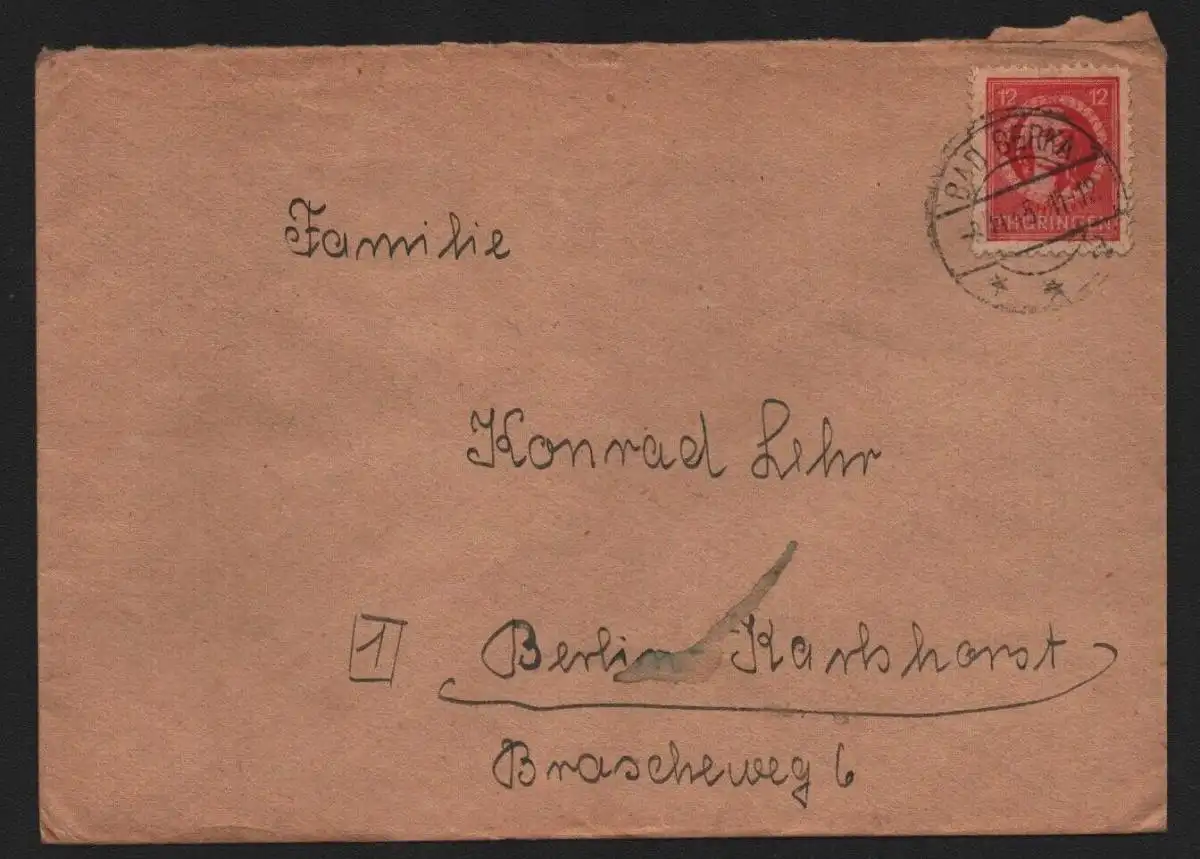 12 12
BAD BERKA
THÜRINGEN
Familie
Konrad Lehr
1 Berlin Karlshorst
Brascheweg 6